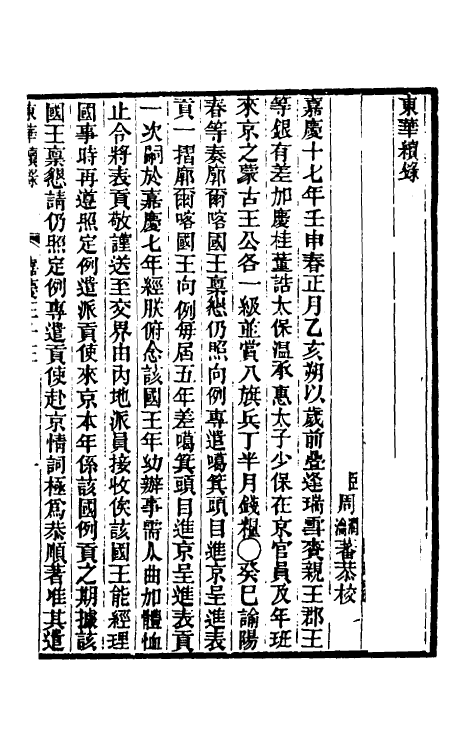 東華續錄
臣周潤蕃瀹蕃恭校
嘉慶十七年壬申春正月乙亥朔以歲前疊逢瑞雪賚親王郡王
等銀有差加慶桂董誥太保溫承惠太子少保在京官員及年班
來京之蒙古王公各一級並賞八旗兵丁半月錢糧〇癸巳諭陽
春等奏廓爾喀國王稟懇仍照向例專遣噶箕頭目進京呈進表
貢一摺廓爾喀國王向例每屆五年差噶箕頭目進京呈進表貢
一次嗣於嘉慶七年經朕俯念該國王年幼辦事需人曲加體恤
止令將表貢敬謹送至交界由內地派員接收俟該國王能經理
國事時再遵照定例遣派貢使來京本年係該國例貢之期據該
國王稟懇請仍照定例專遣貢使赴京情詞極為恭順著准其遣
東華續錄 嘉慶三十三 一